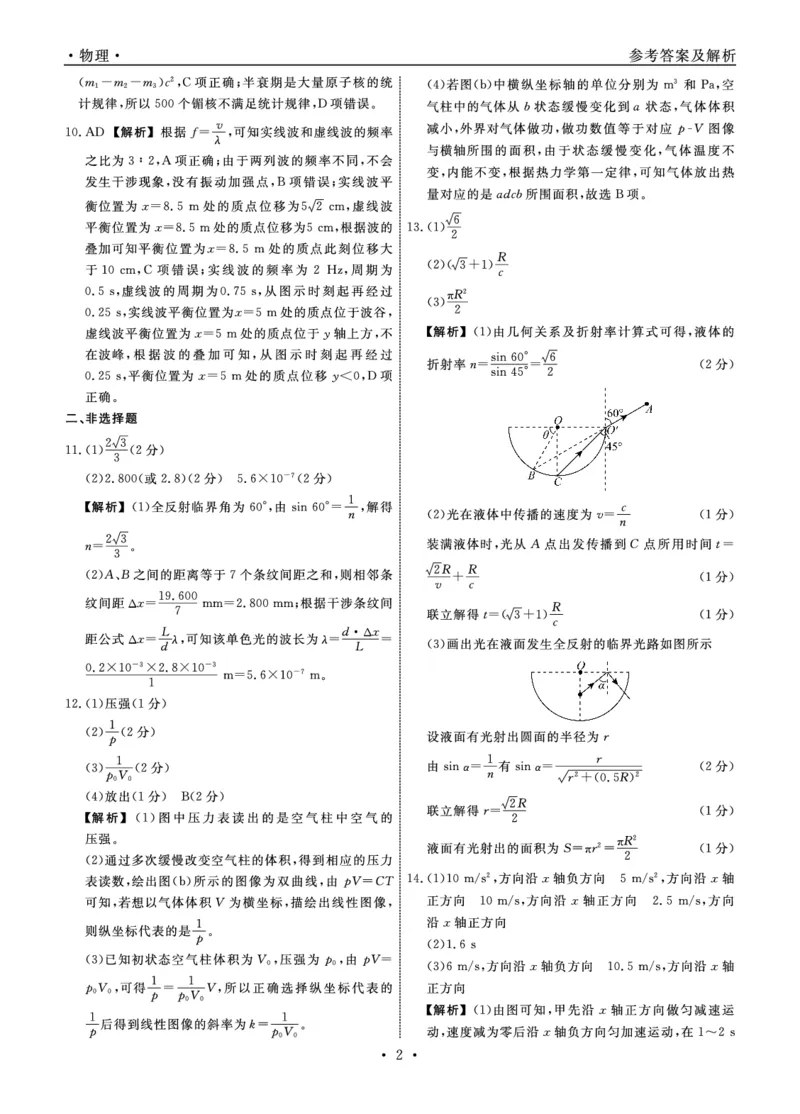 ·物理·
参考答案及解析
(m₁-m₂-m₃)c²,C项正确;半衰期是大量原子核的统
计规律,所以500个镅核不满足统计规律,D项错误。
10.AD 【解析】根据 f=v/λ,可知实线波和虚线波的频率
之比为3∶2,A项正确;由于两列波的频率不同,不会
发生干涉现象,没有振动加强点,B项错误;实线波平
衡位置为 x=8.5 m处的质点位移为5√2 cm,虚线波
平衡位置为x=8.5 m处的质点位移为5 cm,根据波的
叠加可知平衡位置为x=8.5 m处的质点此刻位移大
于10 cm,C项错误;实线波的频率为 2 Hz,周期为
0.5 s,虚线波的周期为0.75 s,从图示时刻起再经过
0.25 s,实线波平衡位置为x=5 m处的质点位于波谷,
虚线波平衡位置为x=5 m处的质点位于y轴上方,不
在波峰,根据波的叠加可知,从图示时刻起再经过
0.25 s,平衡位置为 x=5 m处的质点位移 y<0,D项
正确。
二、非选择题
11.(1)2√3/3(2分)
(2)2.800(或2.8)(2分) 5.6×10⁻⁷(2分)
【解析】(1)全反射临界角为60°,由 sin 60°=1/n,解得
n=2√3/3。
(2)A、B之间的距离等于7个条纹间距之和,则相邻条
纹间距 Δx=19.600/7 mm=2.800 mm;根据干涉条纹间
距公式 Δx=L/d λ,可知该单色光的波长为λ=d·Δx/L=
0.2×10⁻³×2.8×10⁻³/1 m=5.6×10⁻⁷ m。
12.(1)压强(1分)
(2)1/p(2分)
(3)1/p₀V₀(2分)
(4)放出(1分) B(2分)
【解析】(1)图中压力表读出的是空气柱中空气的
压强。
(2)通过多次缓慢改变空气柱的体积,得到相应的压力
表读数,绘出图(b)所示的图像为双曲线,由 pV=CT
可知,若想以气体体积V为横坐标,描绘出线性图像,
则纵坐标代表的是1/p。
(3)已知初状态空气柱体积为V₀,压强为 p₀,由 pV=
p₀V₀,可得1/p=1/p₀V₀ V,所以正确选择纵坐标代表的
1/p后得到线性图像的斜率为k=1/p₀V₀。
(4)若图(b)中横纵坐标轴的单位分别为 m³ 和 Pa,空
气柱中的气体从b状态缓慢变化到a 状态,气体体积
减小,外界对气体做功,做功数值等于对应 p-V 图像
与横轴所围的面积,由于状态缓慢变化,气体温度不
变,内能不变,根据热力学第一定律,可知气体放出热
量对应的是adcb所围面积,故选B项。
13.(1)√6/2
(2)(√3+1)R/c
(3)πR²/2
【解析】(1)由几何关系及折射率计算式可得,液体的
折射率n=sin 60°/sin 45°=√6/2 (2分)
O 60° A
θ O′
45°
B C
(2)光在液体中传播的速度为v=c/n (1分)
装满液体时,光从A点出发传播到C点所用时间t=
√2R/v+R/c (1分)
联立解得t=(√3+1)R/c (1分)
(3)画出光在液面发生全反射的临界光路如图所示
O
α
设液面有光射出圆面的半径为r
由 sin α=1/n 有 sin α=r/√(r²+(0.5R)²) (2分)
联立解得r=√2R/2 (1分)
液面有光射出的面积为S=πr²=πR²/2 (1分)
14.(1)10 m/s²,方向沿x轴负方向 5 m/s²,方向沿x轴
正方向 10 m/s,方向沿x轴正方向 2.5 m/s,方向
沿x轴正方向
(2)1.6 s
(3)6 m/s,方向沿x轴负方向 10.5 m/s,方向沿x轴
正方向
【解析】(1)由图可知,甲先沿 x 轴正方向做匀减速运
动,速度减为零后沿x轴负方向匀加速运动,在1~2 s
·2·